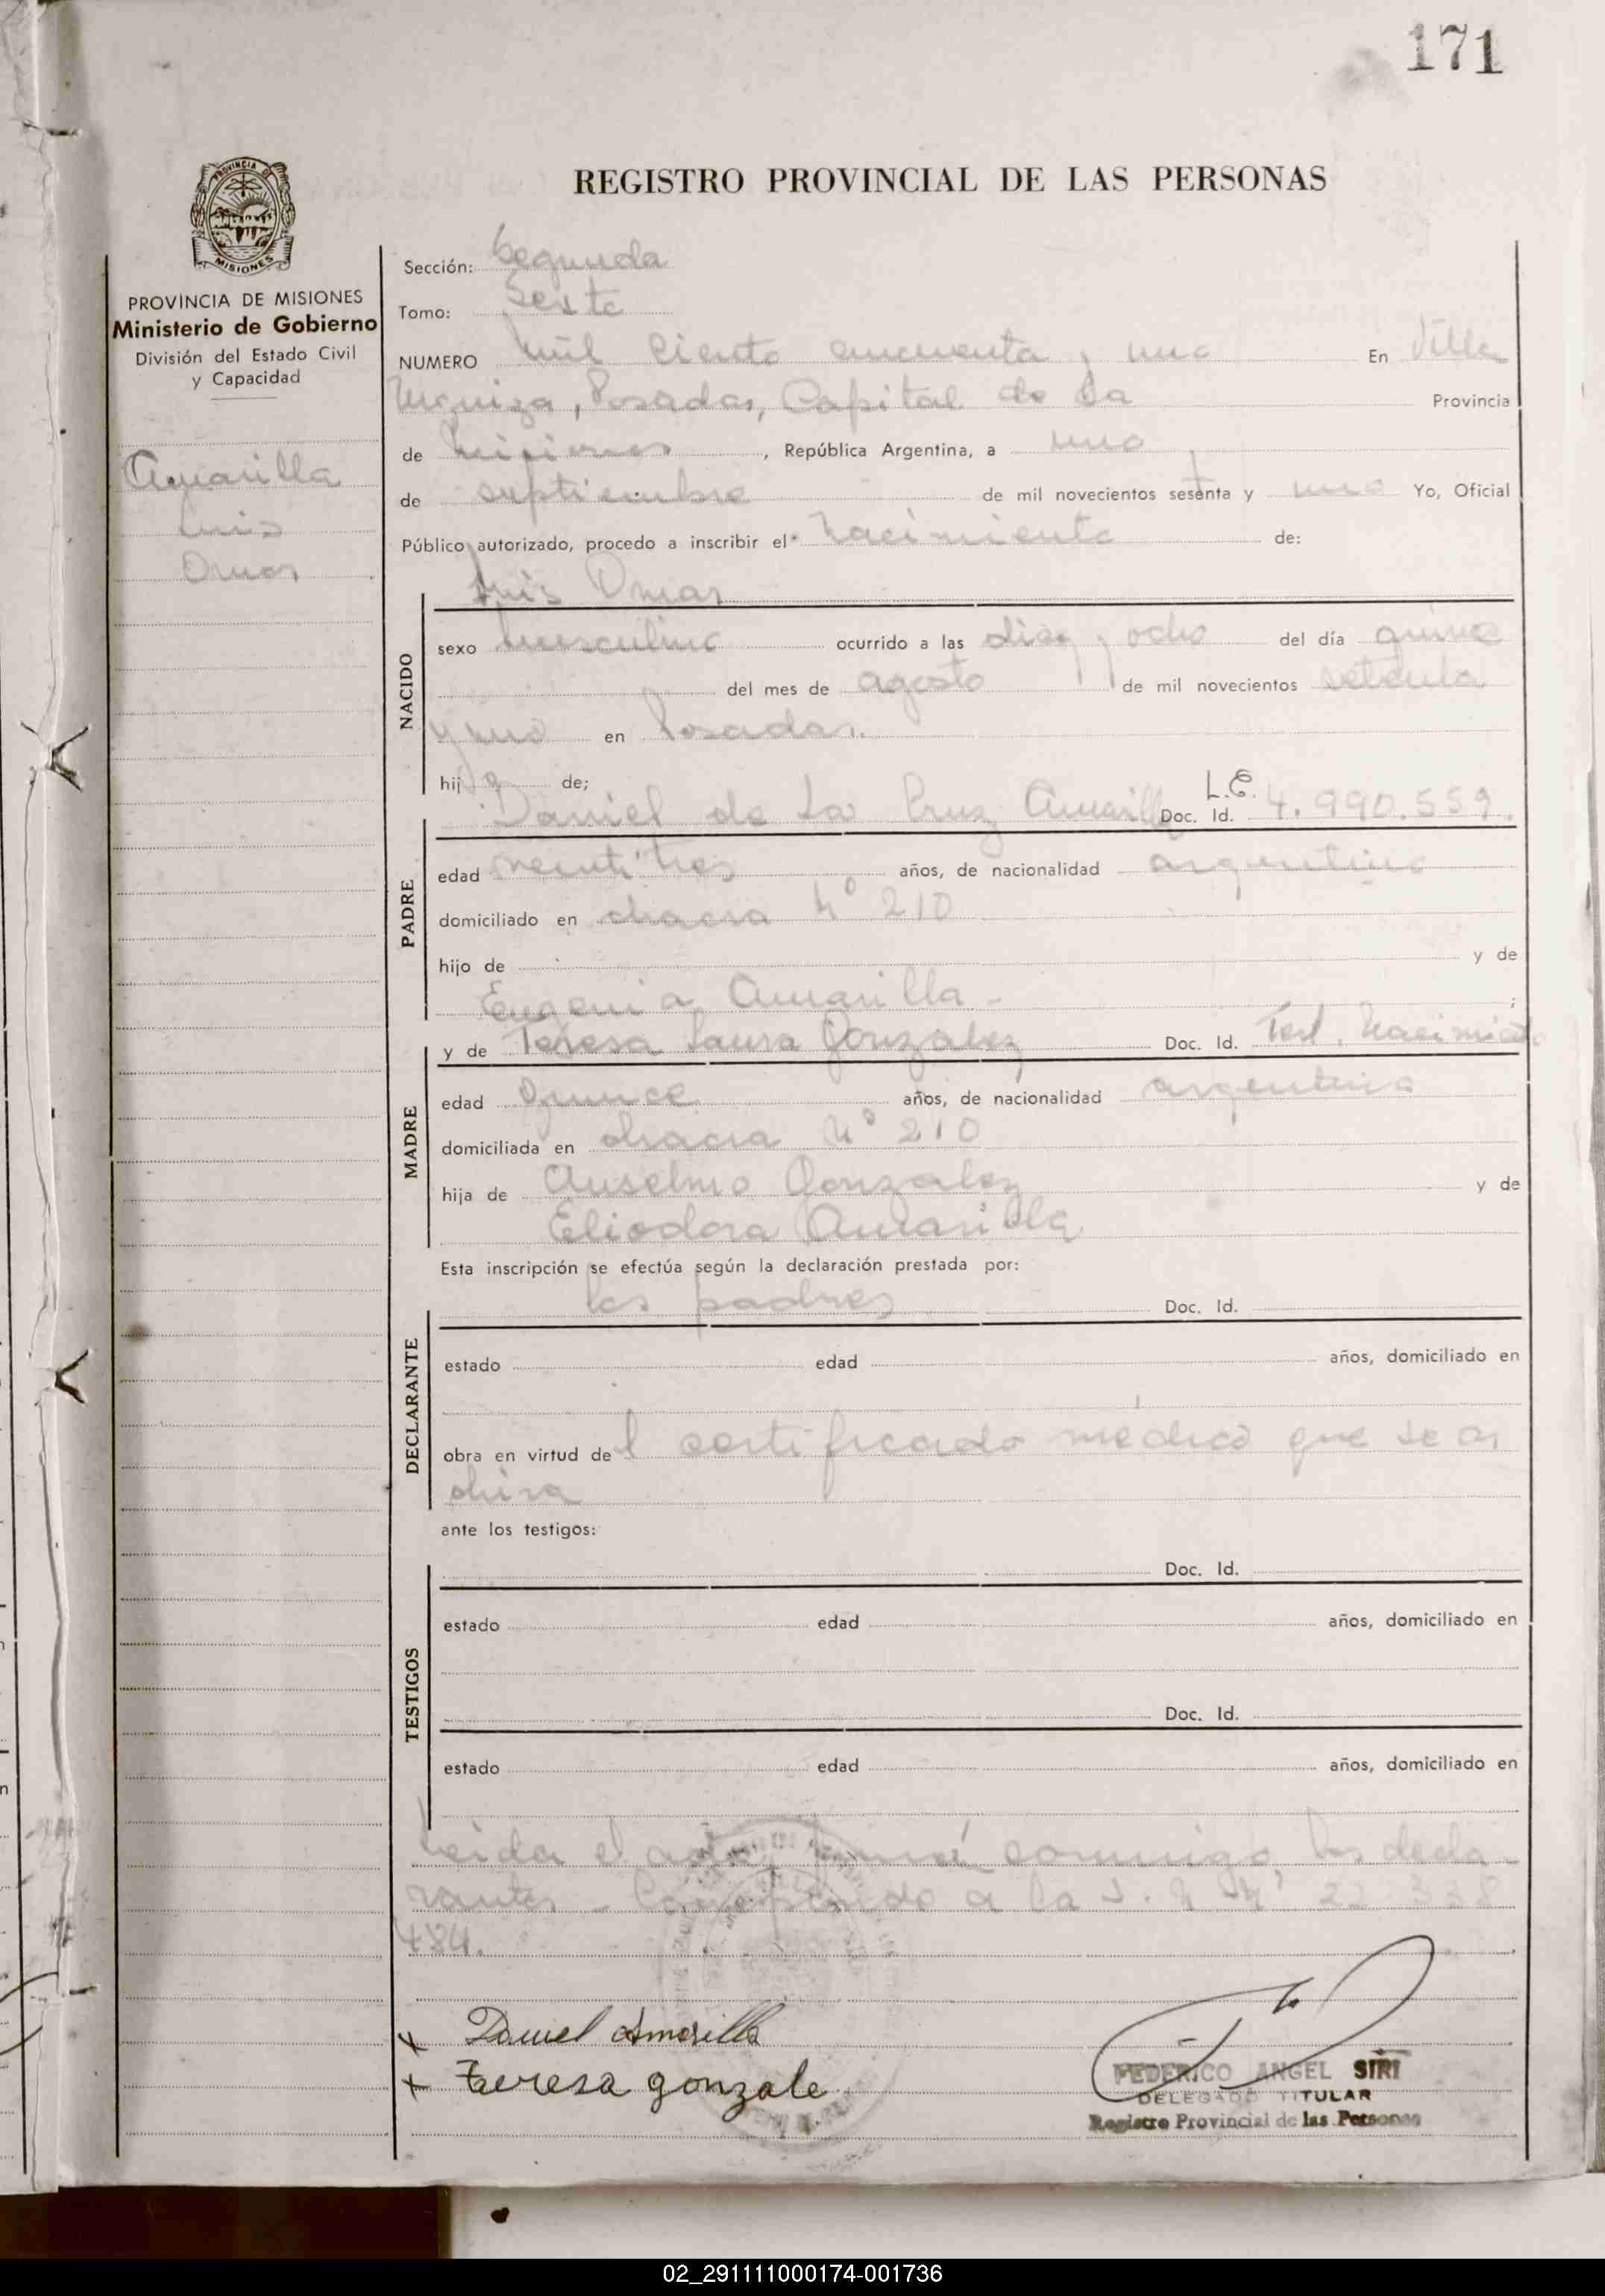 171
REGISTRO PROVINCIAL DE LAS PERSONAS
PROVINCIA DE MISIONES
MISIONES
PROVINCIA DE MISIONES
Ministerio de Gobierno
División del Estado Civil
y Capacidad
Amarilla
Luis
Omar
Sección: Segunda
Tomo: Sexto
NUMERO mil ciento cincuenta y uno En Villa
Urquiza, Posadas, Capital de la Provincia
de Misiones, República Argentina, a uno
de septiembre de mil novecientos sesenta y uno Yo, Oficial
Público autorizado, procedo a inscribir el nacimiento de:
Luis Omar
NACIDO
sexo masculino ocurrido a las diez y ocho del día quince
del mes de agosto de mil novecientos setenta
y uno en Posadas.
hijo de;
Daniel de La Cruz Amarilla Doc. Id. L.E. 4.990.559.
PADRE
edad veintitres años, de nacionalidad argentina
domiciliado en chacra Nº 210
hijo de y de
Eugenia Amarilla -
y de Teresa Laura Gonzalez Doc. Id. Test. Nacimiento
MADRE
edad Quince años, de nacionalidad argentina
domiciliada en chacra Nº 210
hija de Anselmo Gonzalez y de
Eliodora Amarilla
Esta inscripción se efectúa según la declaración prestada por:
los padres Doc. Id.
DECLARANTE
estado edad años, domiciliado en
obra en virtud del certificado médico que se ar
chiva
ante los testigos:
Doc. Id.
TESTIGOS
estado edad años, domiciliado en
Doc. Id.
estado edad años, domiciliado en
Leida el acta, conmigo, los decla-
rantes - a la 22.338
484.
Daniel Amarilla
Teresa gonzale
FEDERICO ANGEL SIRI
DELEGADO TITULAR
Registro Provincial de las Personas
02_291111000174-001736